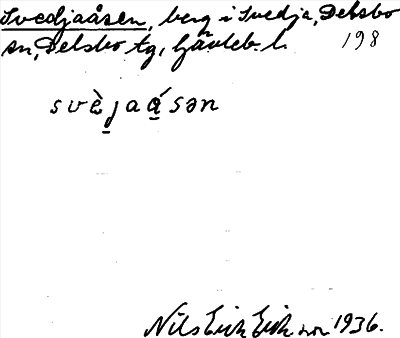 Svedjaåsen, berg i Svedja, Delsbo
sn, Delsbo tg, Gävleb. l. 198
svèjaásən
Nils Erik Erikson 1936.